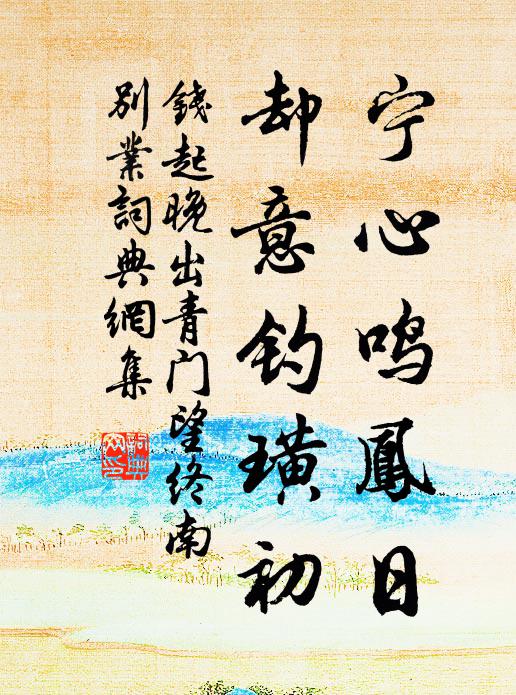 宁心鸣鳳日
却意钓璜初
錢起晚出青门望终南
别業詞典網集